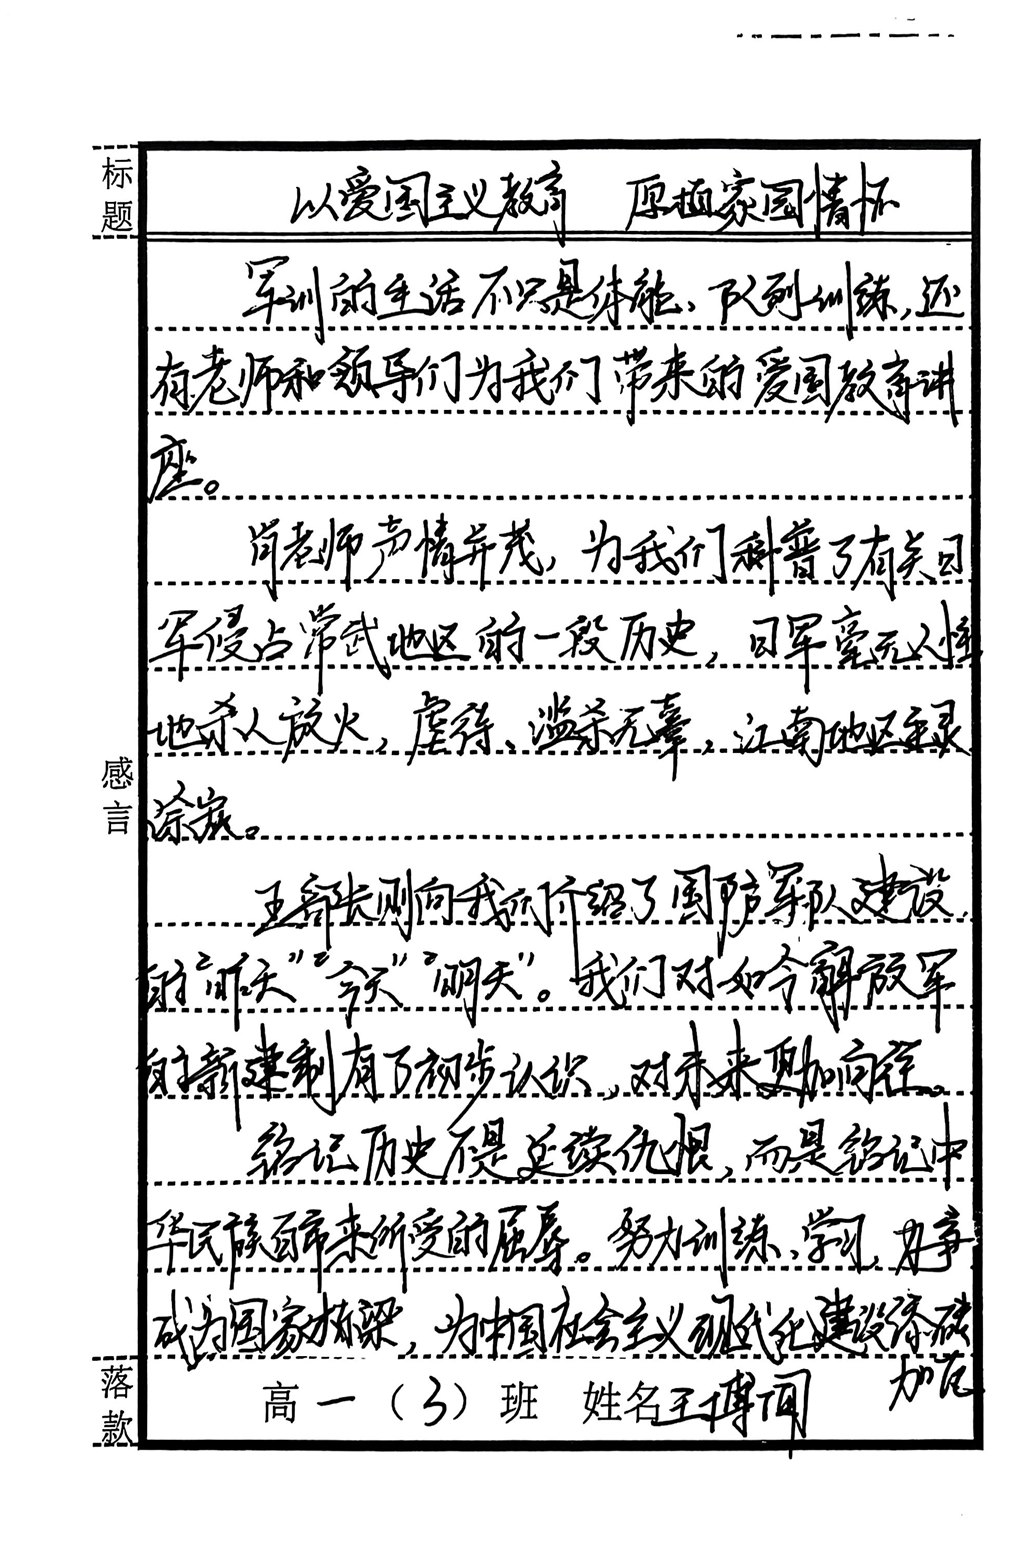 标题
以爱国主义教育 厚植家国情怀
军训的生活不只是体能、队列训练，还
有老师和领导们为我们带来的爱国教育讲
座。
肖老师声情并茂，为我们科普了有关日
军侵占常武地区的一段历史，日军毫无人性
地杀人放火，虐待、滥杀无辜，江南地区生灵
涂炭。
感言
王部长则向我们介绍了国防军队建设
的“昨天”“今天”“明天”。我们对如今解放军
的新建制有了初步认识，对未来更加向往。
铭记历史不是延续仇恨，而是铭记中
华民族百年来所受的屈辱。努力训练、学习，力争
成为国家栋梁，为中国社会主义现代化建设添砖
加瓦
落款
高一（3）班 姓名王博闻